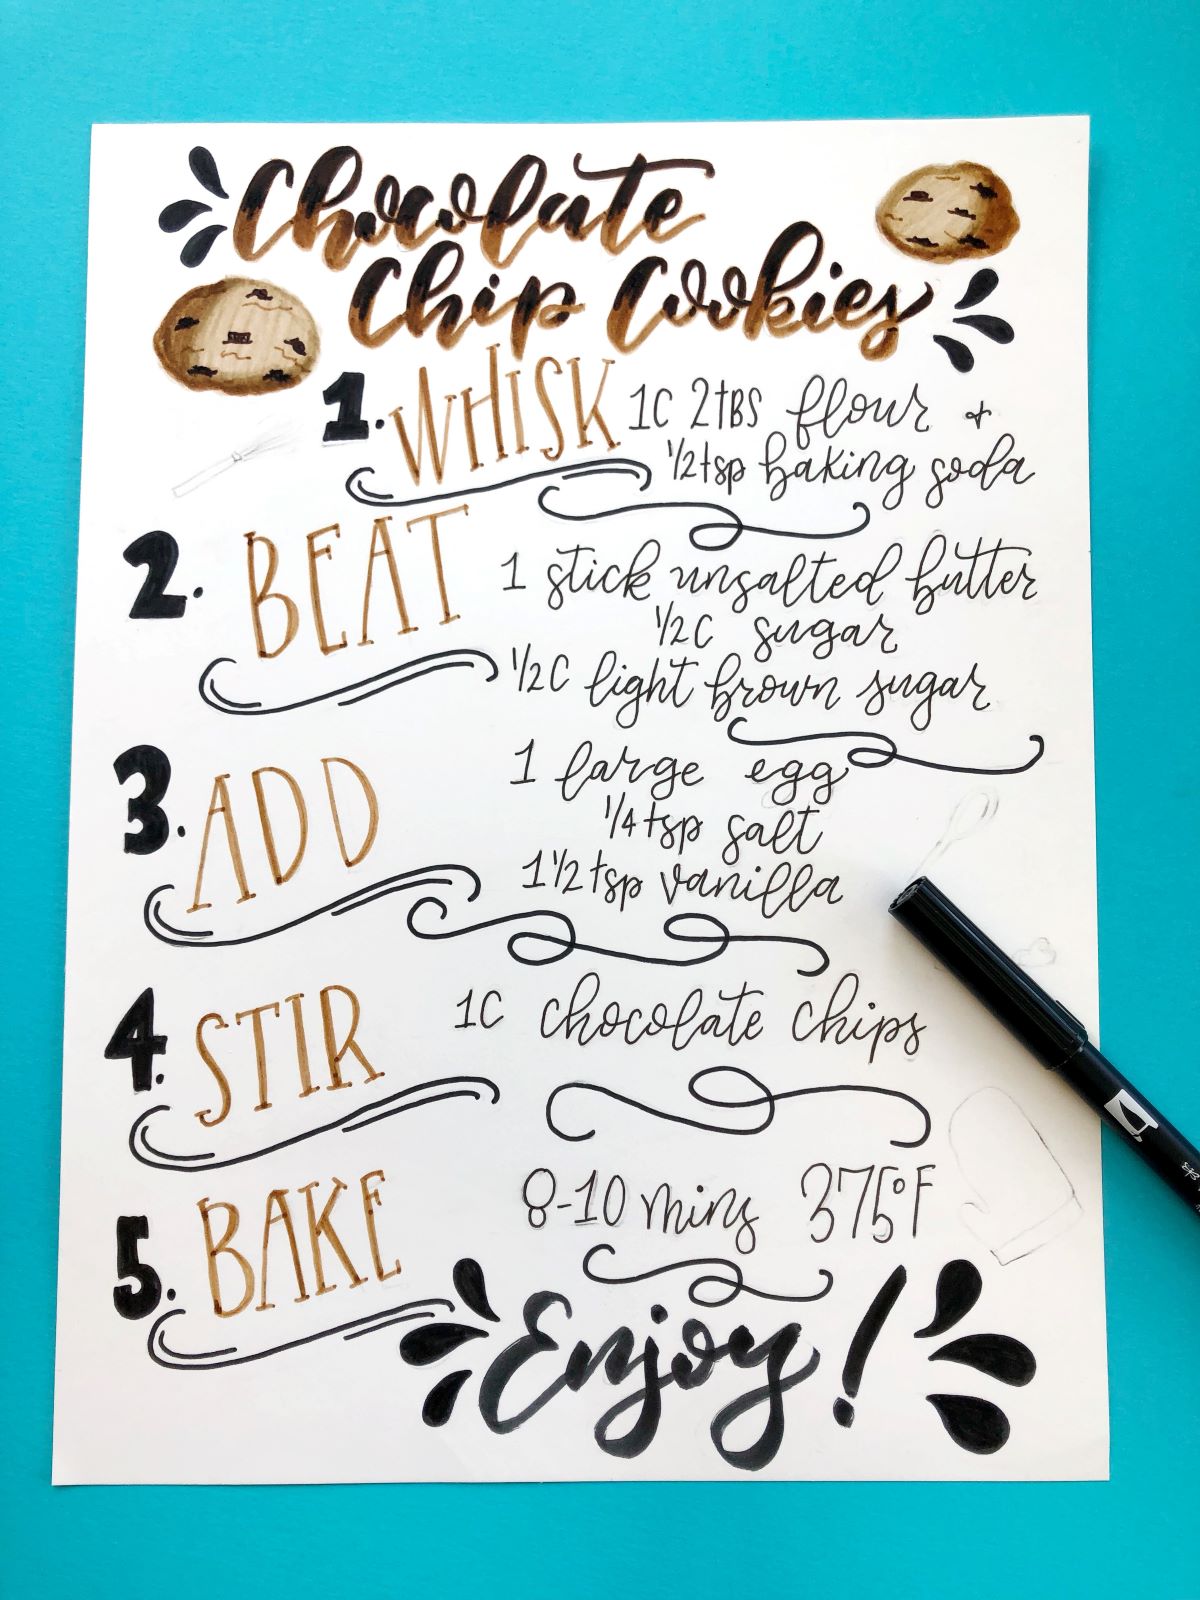 Chocolate
Chip Cookies
1. WHISK 1C 2tBS flour +
1/2 tsp baking soda
2. BEAT 1 stick unsalted butter
1/2C sugar
1/2C light brown sugar
3. ADD 1 large egg
1/4 tsp salt
1 1/2 tsp vanilla
4. STIR 1C chocolate chips
5. BAKE 8-10 mins 375°F
Enjoy!